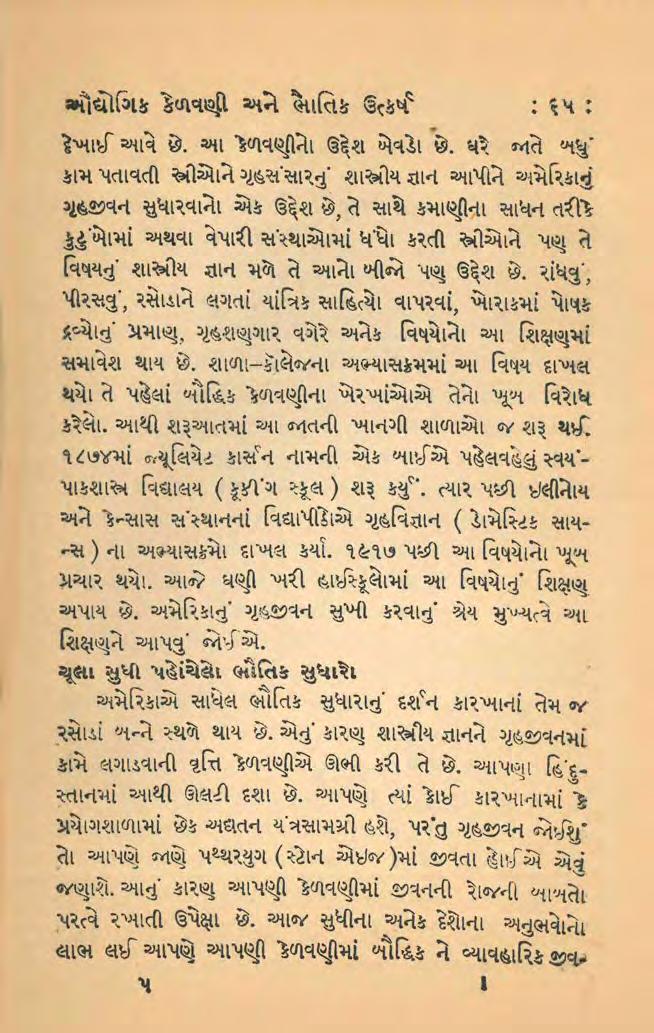 ઔદ્યોગિક કેળવણી અને ભૌતિક ઉત્કર્ષ : ૬૫ :
દેખાઈ આવે છે. આ કેળવણીનો ઉદ્દેશ બેવડો છે. ઘરે જાતે બધું
કામ પતાવતી સ્ત્રીઓને ગૃહસંસારનું શાસ્ત્રીય જ્ઞાન આપીને અમેરિકાનું
ગૃહજીવન સુધારવાનો એક ઉદ્દેશ છે, તે સાથે કમાણીના સાધન તરીકે
કુટુંબોમાં અથવા વેપારી સંસ્થાઓમાં ધંધો કરતી સ્ત્રીઓને પણ તે
વિષયનું શાસ્ત્રીય જ્ઞાન મળે તે આનો બીજો પણ ઉદ્દેશ છે. રાંધવું,
પીરસવું, રસોડાને લગતાં યાંત્રિક સાહિત્યો વાપરવાં, ખોરાકમાં પોષક
દ્રવ્યોનું પ્રમાણ, ગૃહશણગાર વગેરે અનેક વિષયોનો આ શિક્ષણમાં
સમાવેશ થાય છે. શાળા–કૉલેજના અભ્યાસક્રમમાં આ વિષય દાખલ
થયો તે પહેલાં બૌદ્ધિક કેળવણીના ખેરખાંઓએ તેનો ખૂબ વિરોધ
કરેલો. આથી શરૂઆતમાં આ જાતની ખાનગી શાળાઓ જ શરૂ થઈ.
૧૮૭૪માં જ્યૂલિયેટ કાર્સન નામની એક બાઈએ પહેલવહેલું સ્વયં-
પાકશાસ્ત્ર વિદ્યાલય ( કૂકીંગ સ્કૂલ ) શરૂ કર્યું. ત્યાર પછી ઇલીનોય
અને કેન્સાસ સંસ્થાનનાં વિદ્યાપીઠોએ ગૃહવિજ્ઞાન ( ડોમેસ્ટિક સાય-
ન્સ ) ના અભ્યાસક્રમો દાખલ કર્યા. ૧૯૧૭ પછી આ વિષયોનો ખૂબ
પ્રચાર થયો. આજે ઘણી ખરી હાઈસ્કૂલોમાં આ વિષયોનું શિક્ષણ
અપાય છે. અમેરિકાનું ગૃહજીવન સુખી કરવાનું શ્રેય મુખ્યત્વે આ
શિક્ષણને આપવું જોઈએ.
ચૂલા સુધી પહોંચેલો ભૌતિક સુધારો
અમેરિકાએ સાધેલ ભૌતિક સુધારાનું દર્શન કારખાનાં તેમ જ
રસોડાં બન્ને સ્થળે થાય છે. એનું કારણ શાસ્ત્રીય જ્ઞાનને ગૃહજીવનમાં
કામે લગાડવાની વૃત્તિ કેળવણીએ ઊભી કરી તે છે. આપણા હિંદુ-
સ્તાનમાં આથી ઊલટી દશા છે. આપણે ત્યાં કોઈ કારખાનામાં કે
પ્રયોગશાળામાં છેક અદ્યતન યંત્રસામગ્રી હશે, પરંતુ ગૃહજીવન જોઈશું
તો આપણે જાણે પથ્થરયુગ ( સ્ટોન એઇજ )માં જીવતા હોઈએ એવું
જણાશે. આનું કારણ આપણી કેળવણીમાં જીવનની રોજની બાબતો
પરત્વે રખાતી ઉપેક્ષા છે. આજ સુધીના અનેક દેશોના અનુભવોનો
લાભ લઈ આપણે આપણી કેળવણીમાં બૌદ્ધિક ને વ્યાવહારિક જીવ-
૫